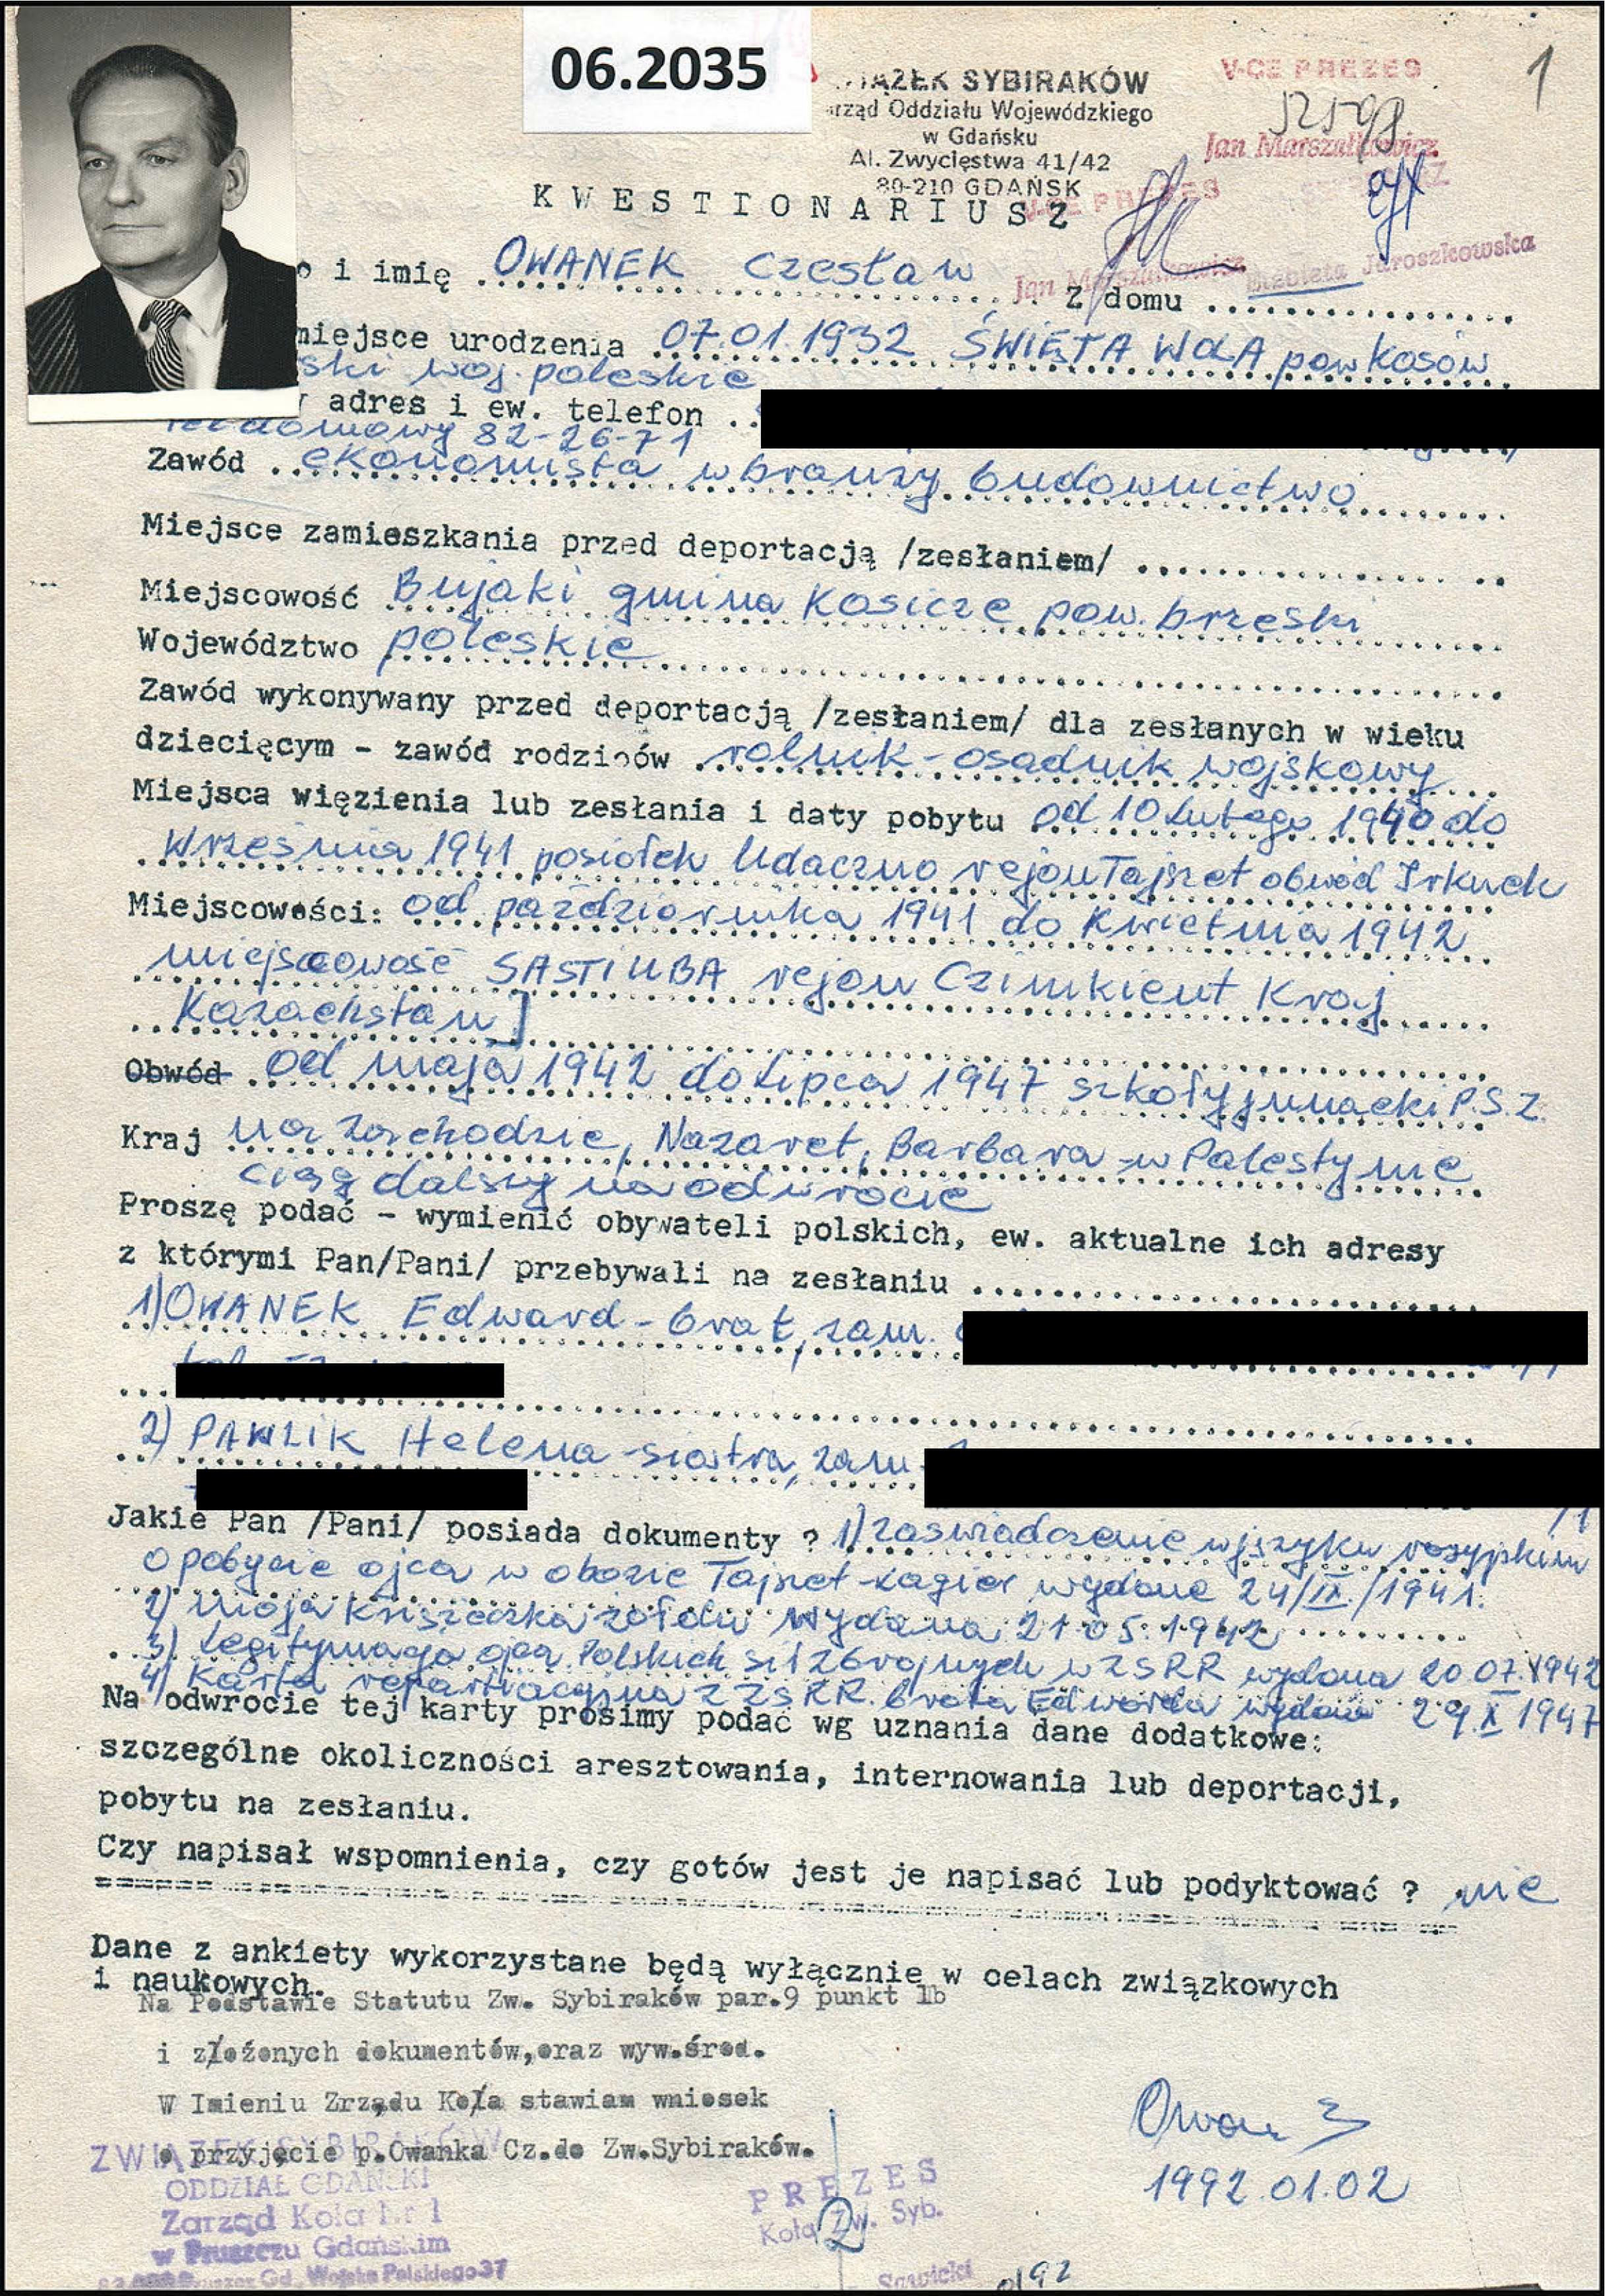 06.2035
1
SYBIRAKÓW
rząd Oddziału Wojewódzkiego
w Gdańsku
Al. Zwycięstwa 41/42
80-210 GDAŃSK
V-CE PREZES
Jan Marszałkowicz
V-CE PREZES
KWESTIONARIUSZ
Jan Marszałkowicz
Elżbieta Jaroszkowska
o i imię OWANEK Czesław Z domu
miejsce urodzenia 07.01.1932 ŚWIĘTA WOLA pow Kosów
ski woj. poleskie
adres i ew. telefon
tel domowy 82-26-71
Zawód ekonomista w branży budownictwo
Miejsce zamieszkania przed deportacją /zesłaniem/
Miejscowość Bujaki gmina Kosicze pow. brzeski
Województwo poleskie
Zawód wykonywany przed deportacją /zesłaniem/ dla zesłanych w wieku
dziecięcym - zawód rodziców rolnik - osadnik wojskowy
Miejsca więzienia lub zesłania i daty pobytu od 10 Lutego 1940 do
Września 1941 posiołek Udaczno rejon Tajszet obwód Irkuck
Miejscowości: od października 1941 do Kwietnia 1942
miejscowość SASTIUBA rejon Czimkient Kraj
Kazachstan]
Obwód od maja 1942 do Lipca 1947 szkoły junacki P.S.Z.
Kraj na Zachodzie, Nazaret, Barbara w Palestynie
ciąg dalszy na odwrocie
Proszę podać - wymienić obywateli polskich, ew. aktualne ich adresy
z którymi Pan/Pani/ przebywali na zesłaniu
1) OWANEK Edward - brat, zam.
2) PAWLIK Helena - siostra, zam.
Jakie Pan /Pani/ posiada dokumenty ? 1) zaświadczenie w języku rosyjskim
o pobycie ojca w obozie Tajszet-Łagier wydane 24/IX./1941.
2) moja Książeczka żołdu wydana 21.05.1942
3) Legitymacja ojca Polskich sił zbrojnych w ZSRR wydana 20.07.1942
4) Karta repatriacyjna z ZSRR. brata Edwarda wydana 29.X 1947
Na odwrocie tej karty prosimy podać wg uznania dane dodatkowe:
szczególne okoliczności aresztowania, internowania lub deportacji,
pobytu na zesłaniu.
Czy napisał wspomnienia, czy gotów jest je napisać lub podyktować ? nie
Dane z ankiety wykorzystane będą wyłącznie w celach związkowych
i naukowych.
Na Podstawie Statutu Zw. Sybiraków par.9 punkt 1b
i złożonych dokumentów,oraz wyw.środ.
W Imieniu Zrządu Koła stawiam wniosek
o przyjęcie p.Owanka Cz.do Zw.Sybiraków.
ZWIĄZEK SYBIRAKÓW
ODDZIAŁ GDAŃSKI
Zarząd Koła Nr 1
w Pruszczu Gdańskim
Gd. Wojska Polskiego 37
PREZES
Koła Zw. Syb.
2
Sawicki
1992.01.02